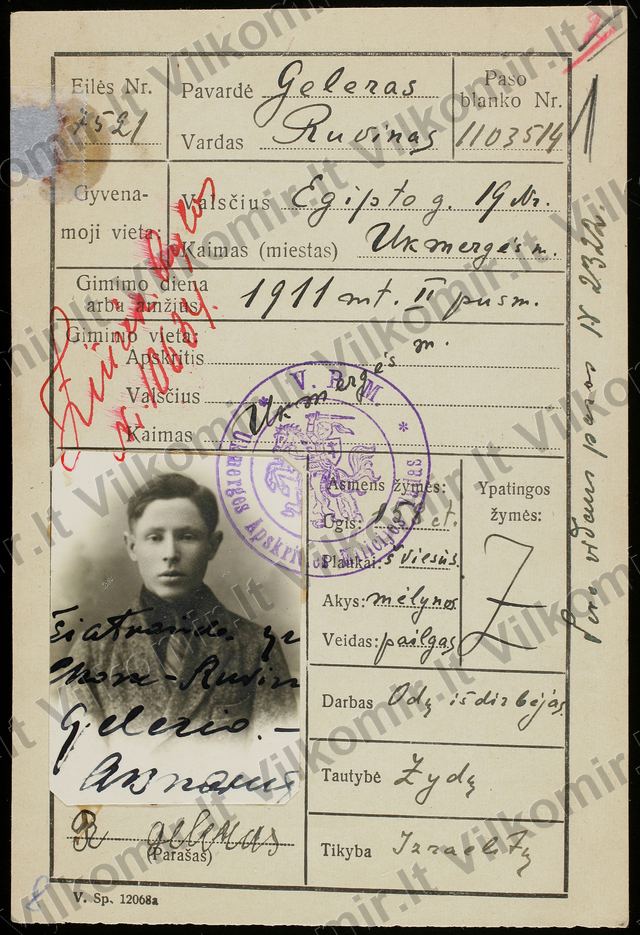 Eilės Nr.
7521
Pavardė Geleras
Vardas Ruvinas
Paso
blanko Nr.
1103514
Gyvena-
moji vieta:
Valsčius Egipto g. 19 Nr.
Kaimas (miestas) Ukmergės m.
Gimimo diena
arba amžius: 1911 mt. II pusm.
Gimimo vieta:
Apskritis
Valsčius
Kaimas
Ukmergės m.
Nr. 10684.
V. R. M.
Ukmergės Apskrities
Asmens žymės:
Ūgis: 158 ct.
Plaukai: šviesūs
Akys: mėlynos
Veidas: pailgas
Ypatingos
žymės:
Z
Darbas Odų išdirbėjas
Tautybė Žydų
Tikyba
Gelerio.-
R geleras
(Parašas)
V. Sp. 12068a
vidaus pasas Nr 2322.
1
Vilkomir.lt